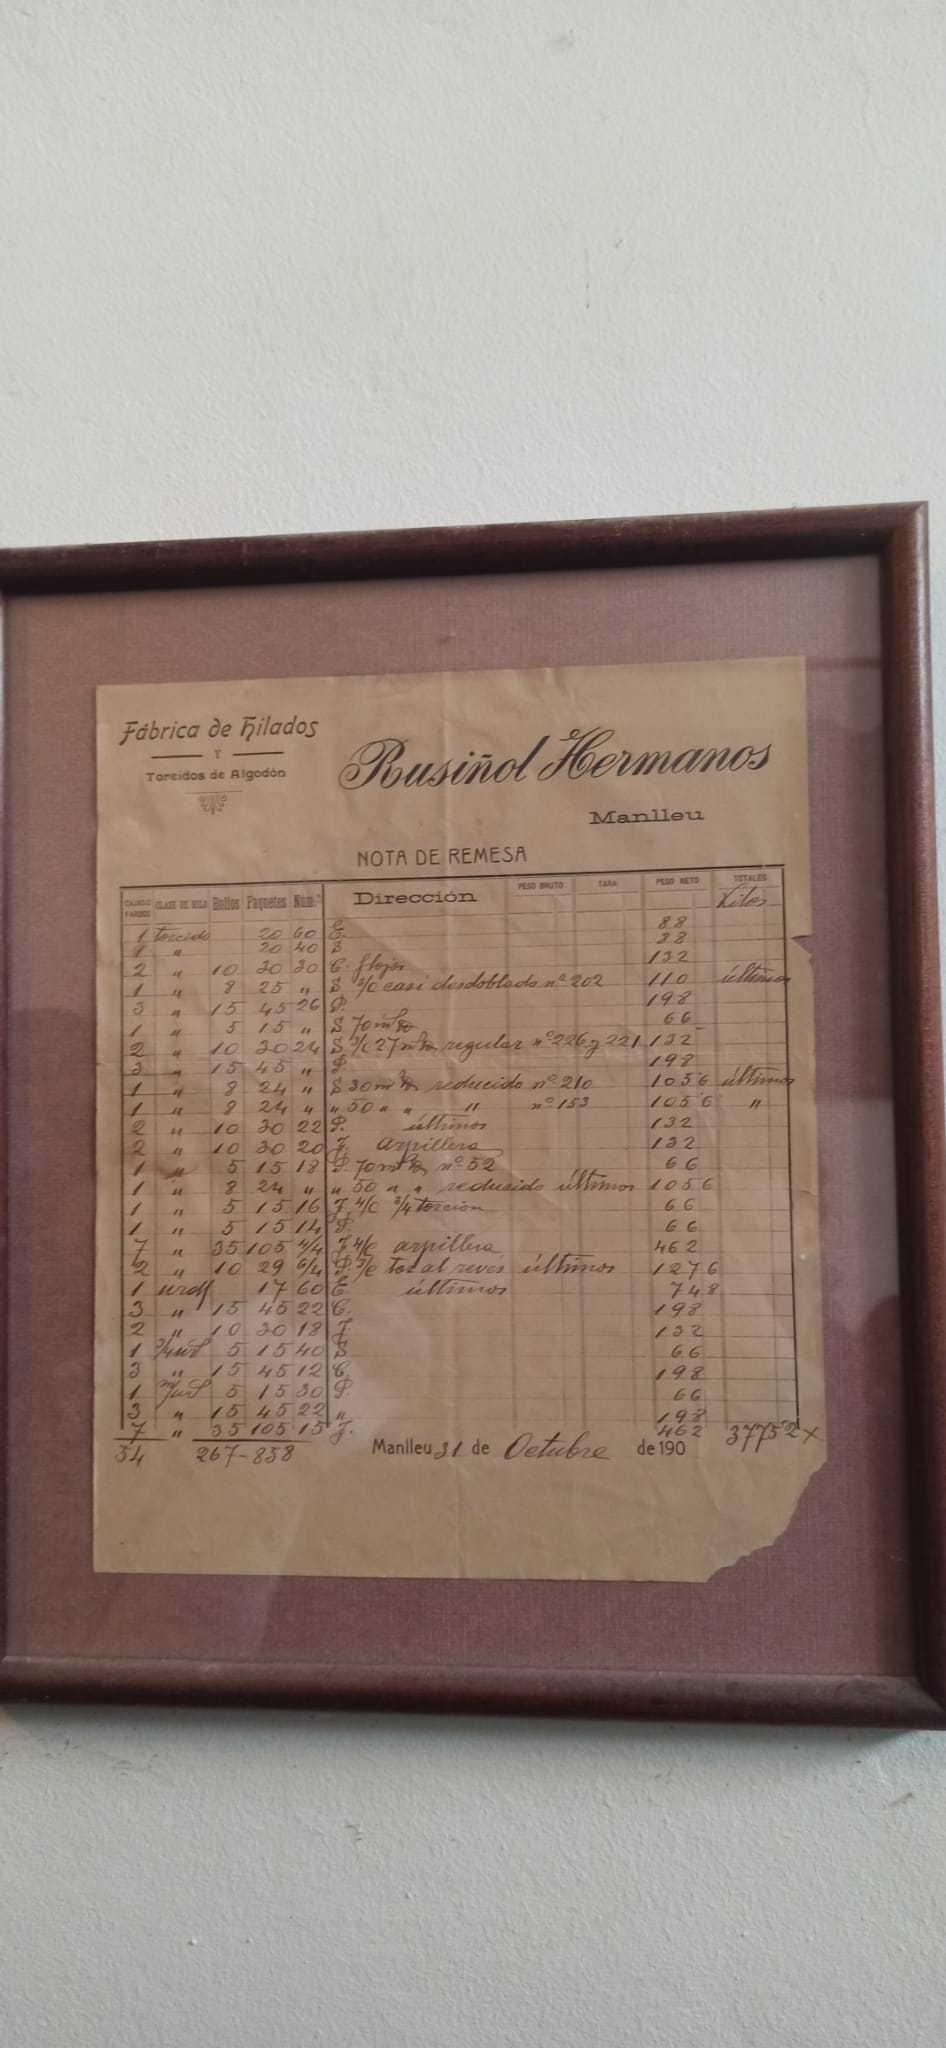 Fábrica de Hilados
Y
Torcidos de Algodón
Rusiñol Hermanos
Manlleu
NOTA DE REMESA
CAJAS O FARDOS CLASE DE HILO Bollos Paquetes Núm.º Dirección PESO BRUTO TARA PESO NETO TOTALES
Kilos
1 torcido 20 60 E. 88
1 " 20 40 S 88
2 " 10 30 30 C. flojos 132
1 " 8 25 " S 3/C casi desdoblado nº 202 110 últimos
3 " 15 45 26 P. 198
1 " 5 15 " S 70 66
2 " 10 30 24 S 3/C 27 regular nº 226 y 221 132
3 " 15 45 " P. 198
1 " 8 24 " S 30 reducido nº 210 105 6 últimos
1 " 8 24 " " 50 " " " nº 153 105 6 "
2 " 10 30 22 P. últimos 132
2 " 10 30 20 J. arpillera 132
1 " 5 15 18 P. 70 nº 52 66
1 " 8 24 " " 50 " " reducido últimos 105 6
1 " 5 15 16 J. 4/C 3/4 torcion 66
1 " 5 15 14 P. 66
7 " 35 105 4/4 J. 4/C arpillera 462
2 " 10 29 6/4 P. 3/C al revés últimos 127 6
1 urdf 17 60 E. últimos 74 8
3 " 15 45 22 C. 198
2 " 10 30 18 J. 132
1 3/4 urd 5 15 40 S 66
3 " 15 45 12 C. 198
1 m/urd 5 15 30 P. 66
3 " 15 45 22 " 198
7 " 35 105 15 J. 462 3775'2 x
54 267-838 Manlleu 31 de Octubre de 190